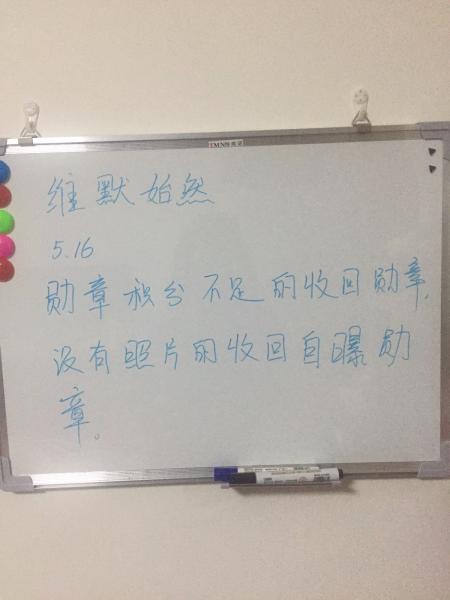 维默始然
5.16
勋章积分不足的收回勋章,
没有照片的收回自曝勋
章。